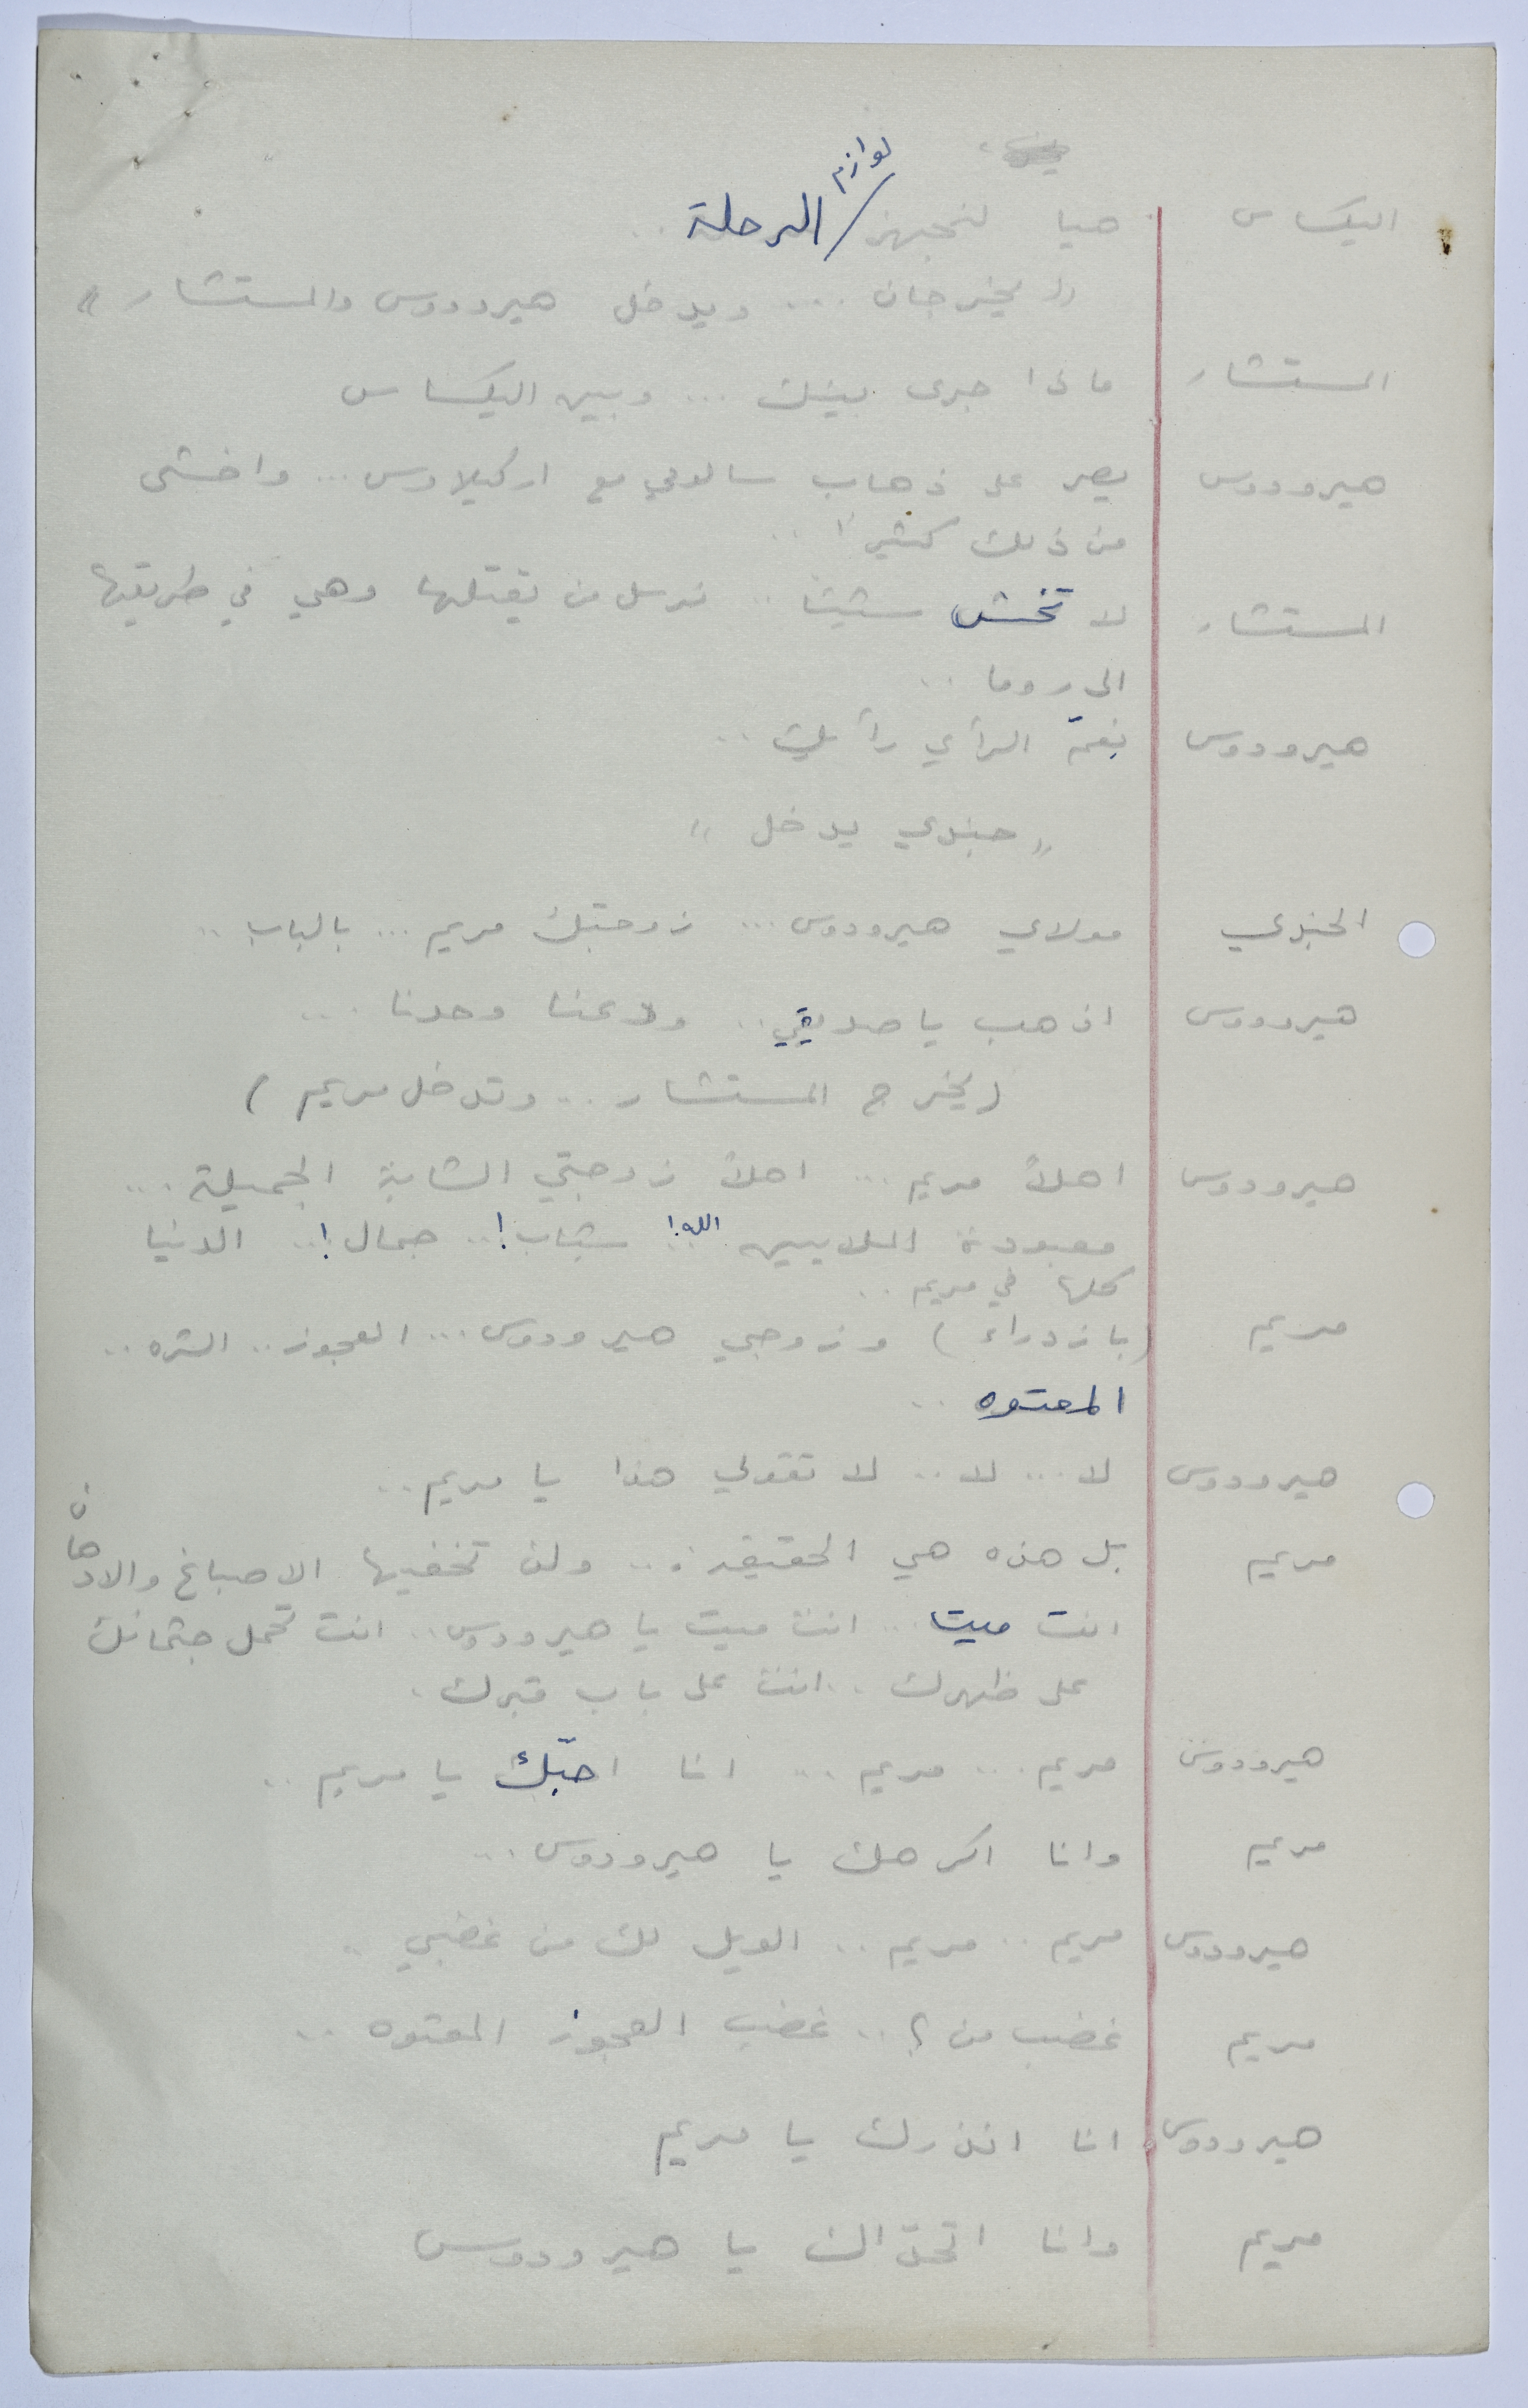 اليكساس هيا لنجهز لوازم الرحلة ..
(( يخرجان ... ويدخل هيرودوس والمستشار ))
المستشار ماذا جرى بينك ... وبين اليكساس
هيرودوس يصر على ذهاب سالومي مع اركيلاوس ... واخشى
من ذلك كثيراً ..
المستشار لا تخش شيئا .. نرسل من يقتلها وهي في طريقها
الى روما ..
هيرودوس نِعمَ الرأي رأيك ..
" جندي يدخل "
الجندي مولاي هيرودوس ... زوجتك مريم ... بالباب ..
هيرودوس اذهب يا صديقي .. ودعنا وحدنا ...
(يخرج المستشار .. وتدخل مريم )
هيرودوس اهلاً مريم ... اهلاً زوجتي الشابة الجميلة ...
معبودة الملايين الله! شباب! .. جمال! .. الدنيا
كلها في مريم ..
مريم (بازدراء ) وزوجي هيرودوس ... العجوز .. الشره ..
المعتوه ..
هيرودوس لا ... لا .. لا تقولي هذا يا مريم ..
مريم بل هذه هي الحقيقة ... ولن تخفيها الاصباغ والادهان
انت ميتا ... انت ميت يا هيرودوس .. انت تحمل جثمانك
على ظهرك .. انت على باب قبرك .
هيرودوس مريم ... مريم ... انا احبّك يا مريم ..
مريم وانا اكرهك يا هيرودوس ...
هيرودوس مريم .. مريم .. الويل لك من غضبي ..
مريم غضب من ؟ .. غضب العجوز المعتوه ..
هيرودوس انا انذرك يا مريم
مريم وانا يا هيرودوس